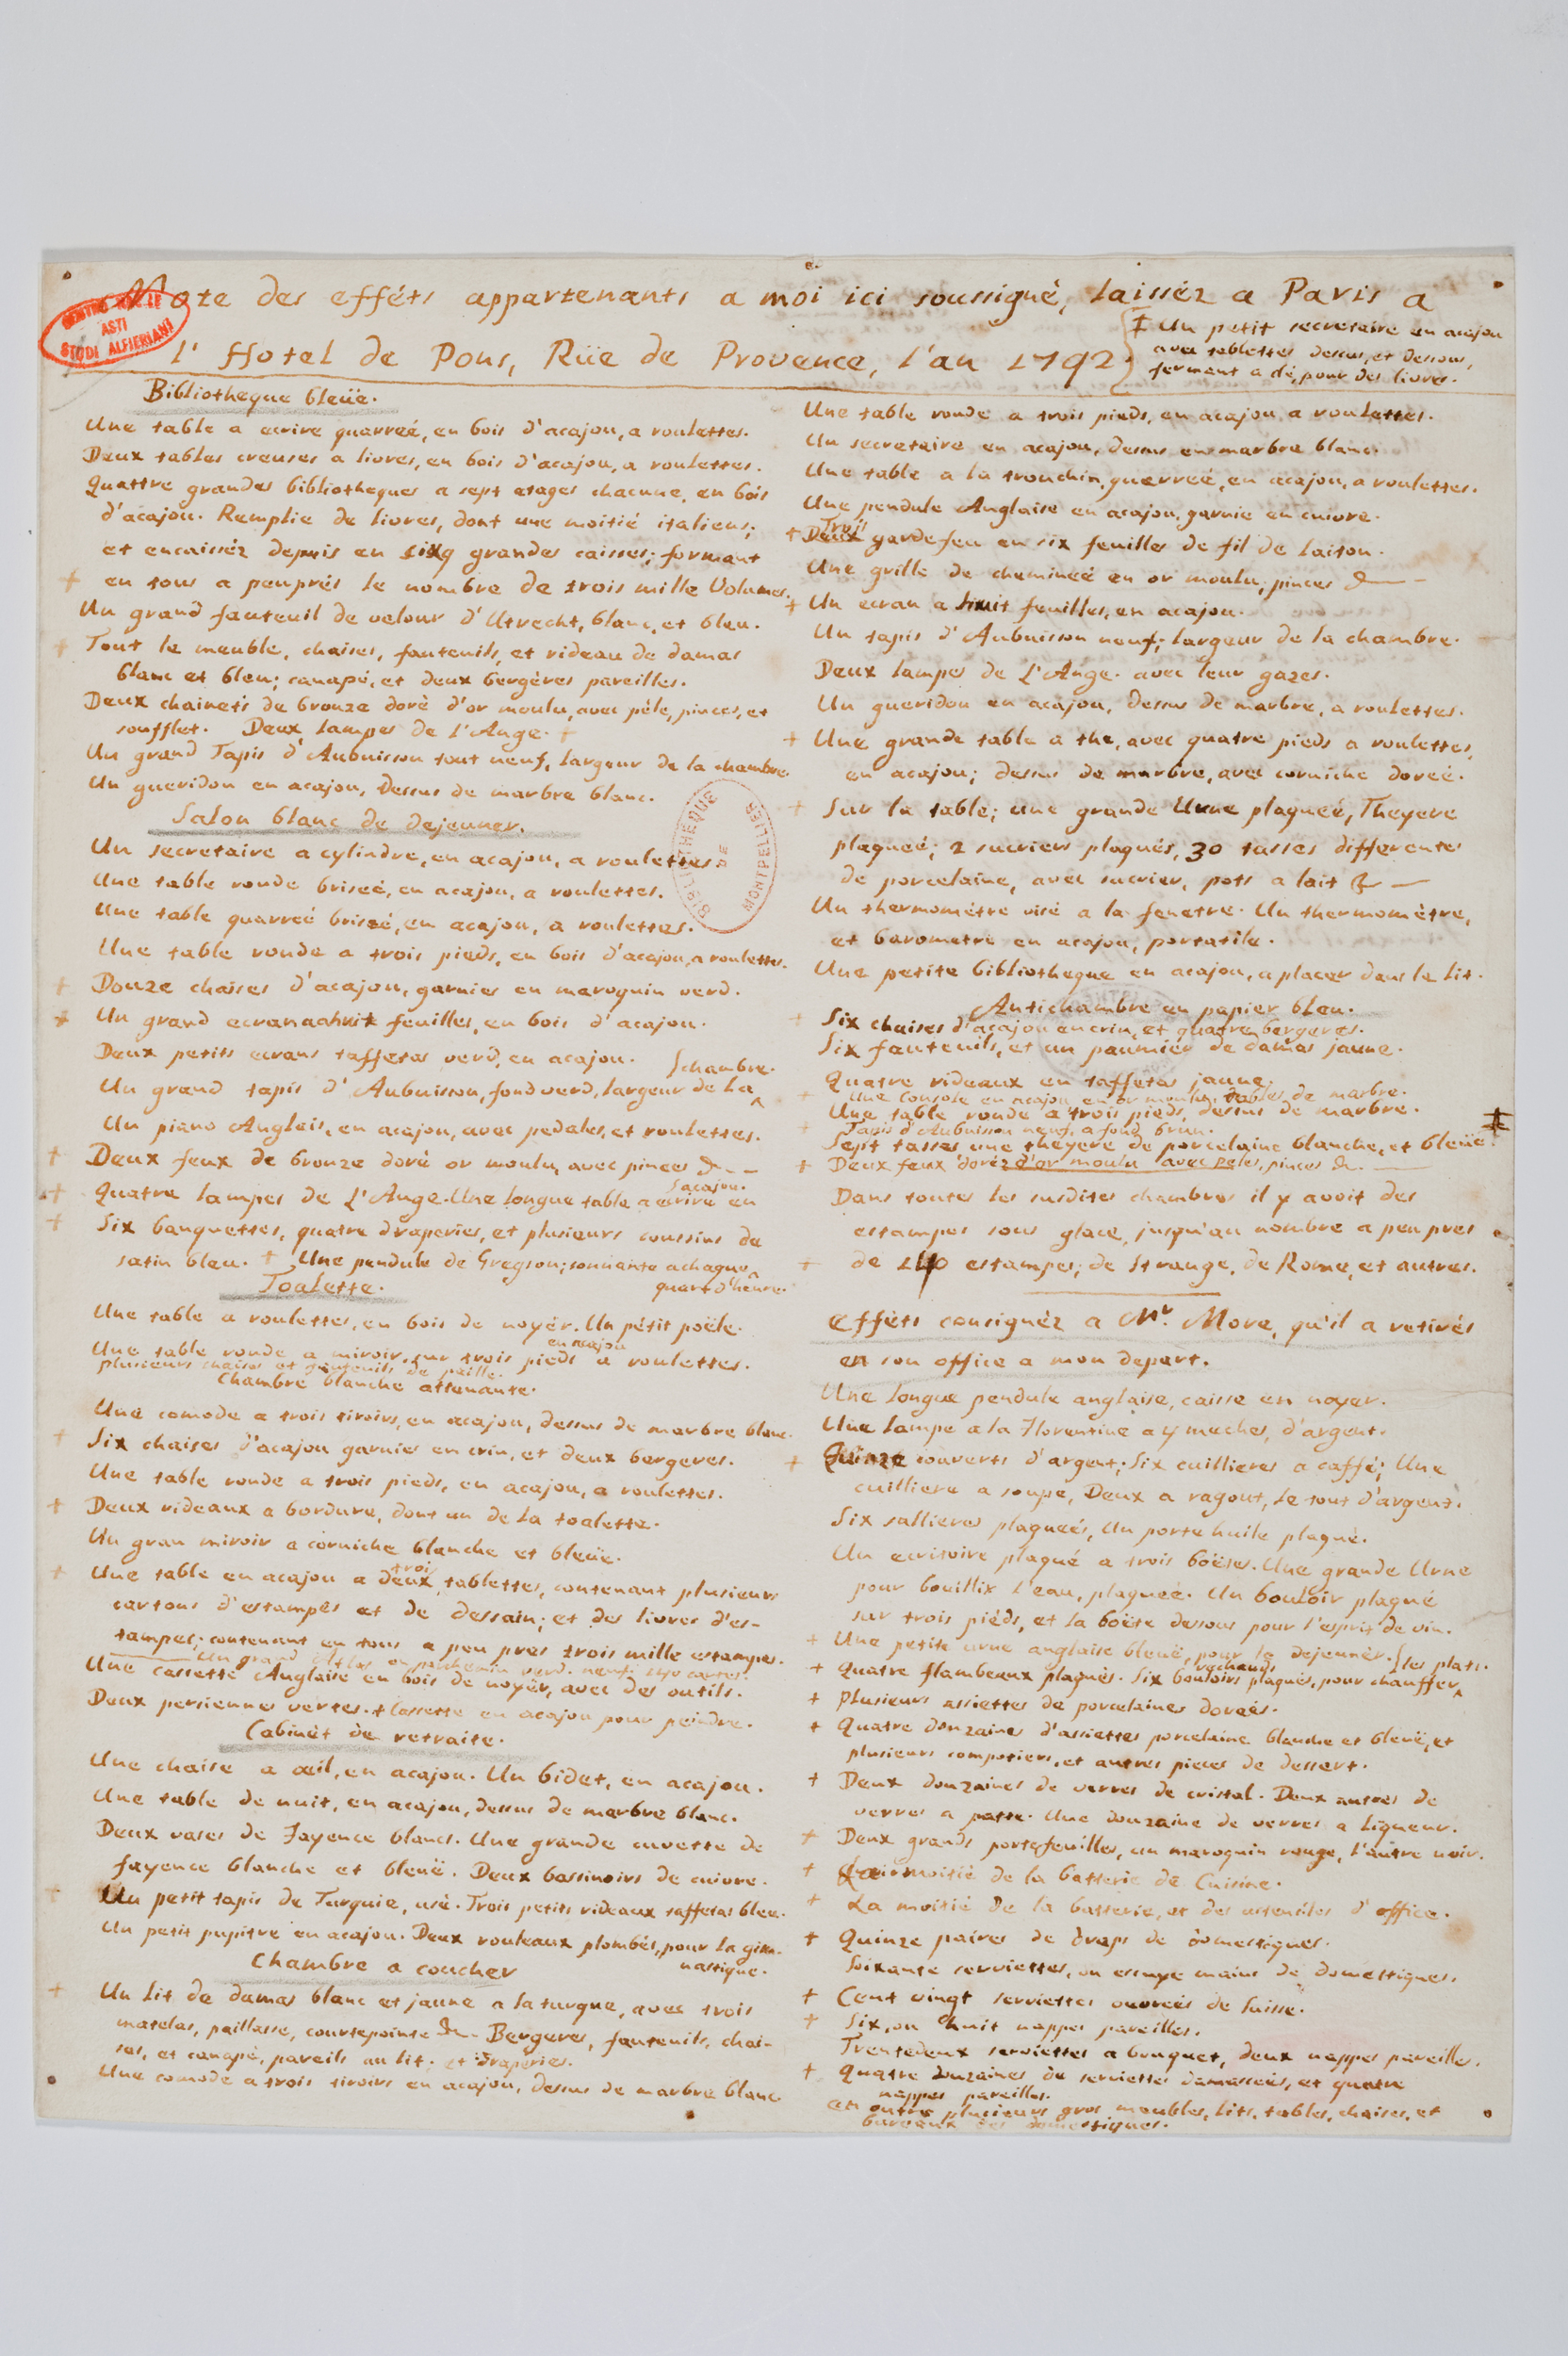 Note des efféts appartenants a moi ici soussigné, laissèz a Paris a
l'Hotel de Pons, Rüe de Provence, l'an 1792.
‡ Un petit secretaire en acajou
avec tablettes dessus, et dessous,
fermant a clé, pour des livres.
CENTRO NAZ.LE
ASTI
STUDI ALFIERIANI
Bibliotheque bleüe.
Une table a ecrire quarreé, en bois d'acajou, a roulettes.
Deux tables creuses a livres, en bois d'acajou, a roulettes.
Quattre grandes bibliotheques a sept etages chacune, en bois
d'acajou. Remplie de livres, dont une moitié italiens;
et encaissèz depuis en grandes caisses; formant
+ en tous a peuprés le nombre de trois mille Volumes.
Un grand fauteuil de velour d'Utrecht, blanc, et bleu.
+ Tout le meuble, chaises, fauteuils, et rideau de damas
blanc et bleu; canapé, et deux bergéres pareilles.
Deux chainets de bronze doré d'or moulu, avec péle, pinces, et
soufflet. Deux lampes de l'Ange. +
Un grand Tapis d'Aubuisson tout neuf, largeur de la chambre.
Un gueridon en acajou, dessus de marbre blanc.
Salon blanc de dejeuner.
BIBLIOTHEQUE DE MONTPELLIER
Un secretaire a cylindre, en acajou, a roulettes
Une table ronde briseé, en acajou, a roulettes.
Une table quarreé briseé, en acajou, a roulettes.
Une table ronde a trois pieds, en bois d'acajou, a roulettes.
+ Douze chaises d'acajou, garnies en maroquin verd.
+ Un grand ecran a huit feuilles, en bois d'acajou.
Deux petits ecrans taffetas verd, en acajou.
Un grand tapis d'Aubuisson, fond verd, largeur de la chambre.
Un piano Anglais, en acajou, avec pedales, et roulettes.
+ Deux feux de bronze doré or moulu, avec pinces &c.
+ Quatre lampes de L'Ange. Une longue table a ecrire en acajou.
+ Six banquettes, quatre draperies, et plusieurs coussins de
satin bleu. + Une pendule de Gregson; sonnante a chaque
quart d'heure.
Toalette.
Une table a roulettes, en bois de noyér. Un pétit poële.
Une table ronde a miroir, sur trois pieds en acajou a roulettes.
plusieurs chaises et fauteuils de paille.
Chambre blanche attenante.
Une comode a trois tiroirs, en acajou, dessus de marbre blanc.
+ Six chaises d'acajou garnies en crin, et deux bergeres.
Une table ronde a trois pieds, en acajou, a roulettes.
+ Deux rideaux a bordure, dont un de la toalette.
Un gran miroir a corniche blanche et bleüe.
+ Une table en acajou a deux troi tablettes, contenant plusieurs
cartons d'estampes et de dessain; et des livres d'es-
tampes; contenant en tous a peu pres trois mille estampes.
Un grand Atlas en parchemin verd. neuf. cartes.
Une cassette Anglaise en bois de noyér, avec des outils.
Deux persiennes vertes. + Cassette en acajou pour peindre.
Cabinét de retraite.
Une chaise a œil, en acajou. Un bidet, en acajou.
Une table de nuit, en acajou, dessus de marbre blanc.
Deux vases de Fayence blancs. Une grande cuvette de
fayence blanche et bleuë. Deux bassinoirs de cuivre.
+ Un petit tapis de Turquie, usé. Trois petits rideaux taffetas bleu.
Un petit pupitre en acajou. Deux rouleaux plombés, pour la gim-
nastique.
Chambre a coucher
+ Un lit de damas blanc et jaune a la turque, avec trois
matelas, paillasse, courtepointe &c. Bergeres, fauteuils, chai-
ses, et canapé, pareils au lit. et draperies.
Une comode a trois tiroirs en acajou, dessus de marbre blanc
Une table ronde a trois pieds, en acajou, a roulettes.
Un secretaire en acajou, dessus en marbre blanc.
Une table a la tronchin, quarreé, en acajou, a roulettes.
Une pendule Anglaise en acajou, garnie en cuivre.
+ Deux Trois gardefeu en six feuilles de fil de laiton.
Une grille de chemineé en or moulu, pinces &c.
+ Un ecran a huit feuilles, en acajou.
Un tapis d'Aubuisson neuf, largeur de la chambre.
Deux lampes de L'Ange. avec leur gazes.
Un gueridon en acajou, dessus de marbre, a roulettes.
+ Une grande table a the, avec quatre pieds a roulettes,
en acajou; dessus de marbre, avec corniche doreé.
+ Sur la table; une grande Urne plaqueé, Theyere
plaqueé; 2 sucriers plaqués, 30 tasses differentes
de porcelaine, avec sucrier, pots a lait &c.
Un thermométre visé a la fenetre. Un thermométre,
et barometre en acajou, portatile.
Une petite bibliotheque en acajou, a placer dans le lit.
Antichambre en papier bleu.
+ Six chaises d'acajou en crin, et quatre bergeres.
Six fauteuils, et un paumier de damas jaune.
Quatre rideaux en taffetas jaune.
+ Une console en acajou en or moulu, tables de marbre.
Une table ronde a trois pieds, dessus de marbre. ‡
+ Tapis d'Aubuisson neuf, a fond brun.
Sept tasses une theyere de porcelaine blanche, et bleüe.
+ Deux feux doréz d'or moulu avec peles, pinces &c.
Dans toutes les susdites chambres il y avoit des
estampes sous glace, jusqu'au nombre a peu pres
+ de 240 estampes; de Strange, de Rome, et autres.
Efféts consignéz a Mr. More, qu'il a retirés
en son office a mon depart.
Une longue pendule anglaise, caisse en noyer.
Une lampe a la Florentine a 4 meches, d'argent.
+ Quinze couverts d'argent; Six cuillieres a caffé; Une
cuilliere a soupe, Deux a ragout, le tout d'argent.
Six sallieres plaqueés, Un porte huile plaqué.
Un ecritoire plaqué a trois boëtes. Une grande Urne
pour bouillir l'eau, plaqueé. Un bouloir plaqué
sur trois piéds, et la boëte dessous pour l'esprit de vin.
+ Une petite urne anglaise bleuë, pour le dejeunér.
+ Quatre flambeaux plaqués. Six bouloirs rechauds plaqués, pour chauffer les plats.
+ Plusieurs assiettes de porcelaines doreés.
+ Quatre douzaines d'assiettes porcelaine blanche et bleuë, et
plusieurs compotiers, et autres pieces de dessert.
+ Deux douzaines de verres de cristal. Deux autres de
verres a patte. Une douzaine de verres a liqueur.
+ Deux grands portefeuilles, un maroquin rouge, l'autre noir.
+ La moitié de la batterie de Cuisine.
+ La moitié de la batterie, et des ustensiles d'office.
+ Quinze paires de draps de domestiques.
Soixante serviettes, ou essuye mains de domestiques.
+ Cent vingt serviettes ouvreés de Suisse.
+ Six, ou huit nappes pareilles.
Trentedeux serviettes a bouquet, deux nappes pareilles.
+ Quatre douzaines de serviettes damasceés, et quatre
nappes pareilles.
en outre plusieurs gros meubles, lits, tables, chaises, et
bureaux des domestiques.